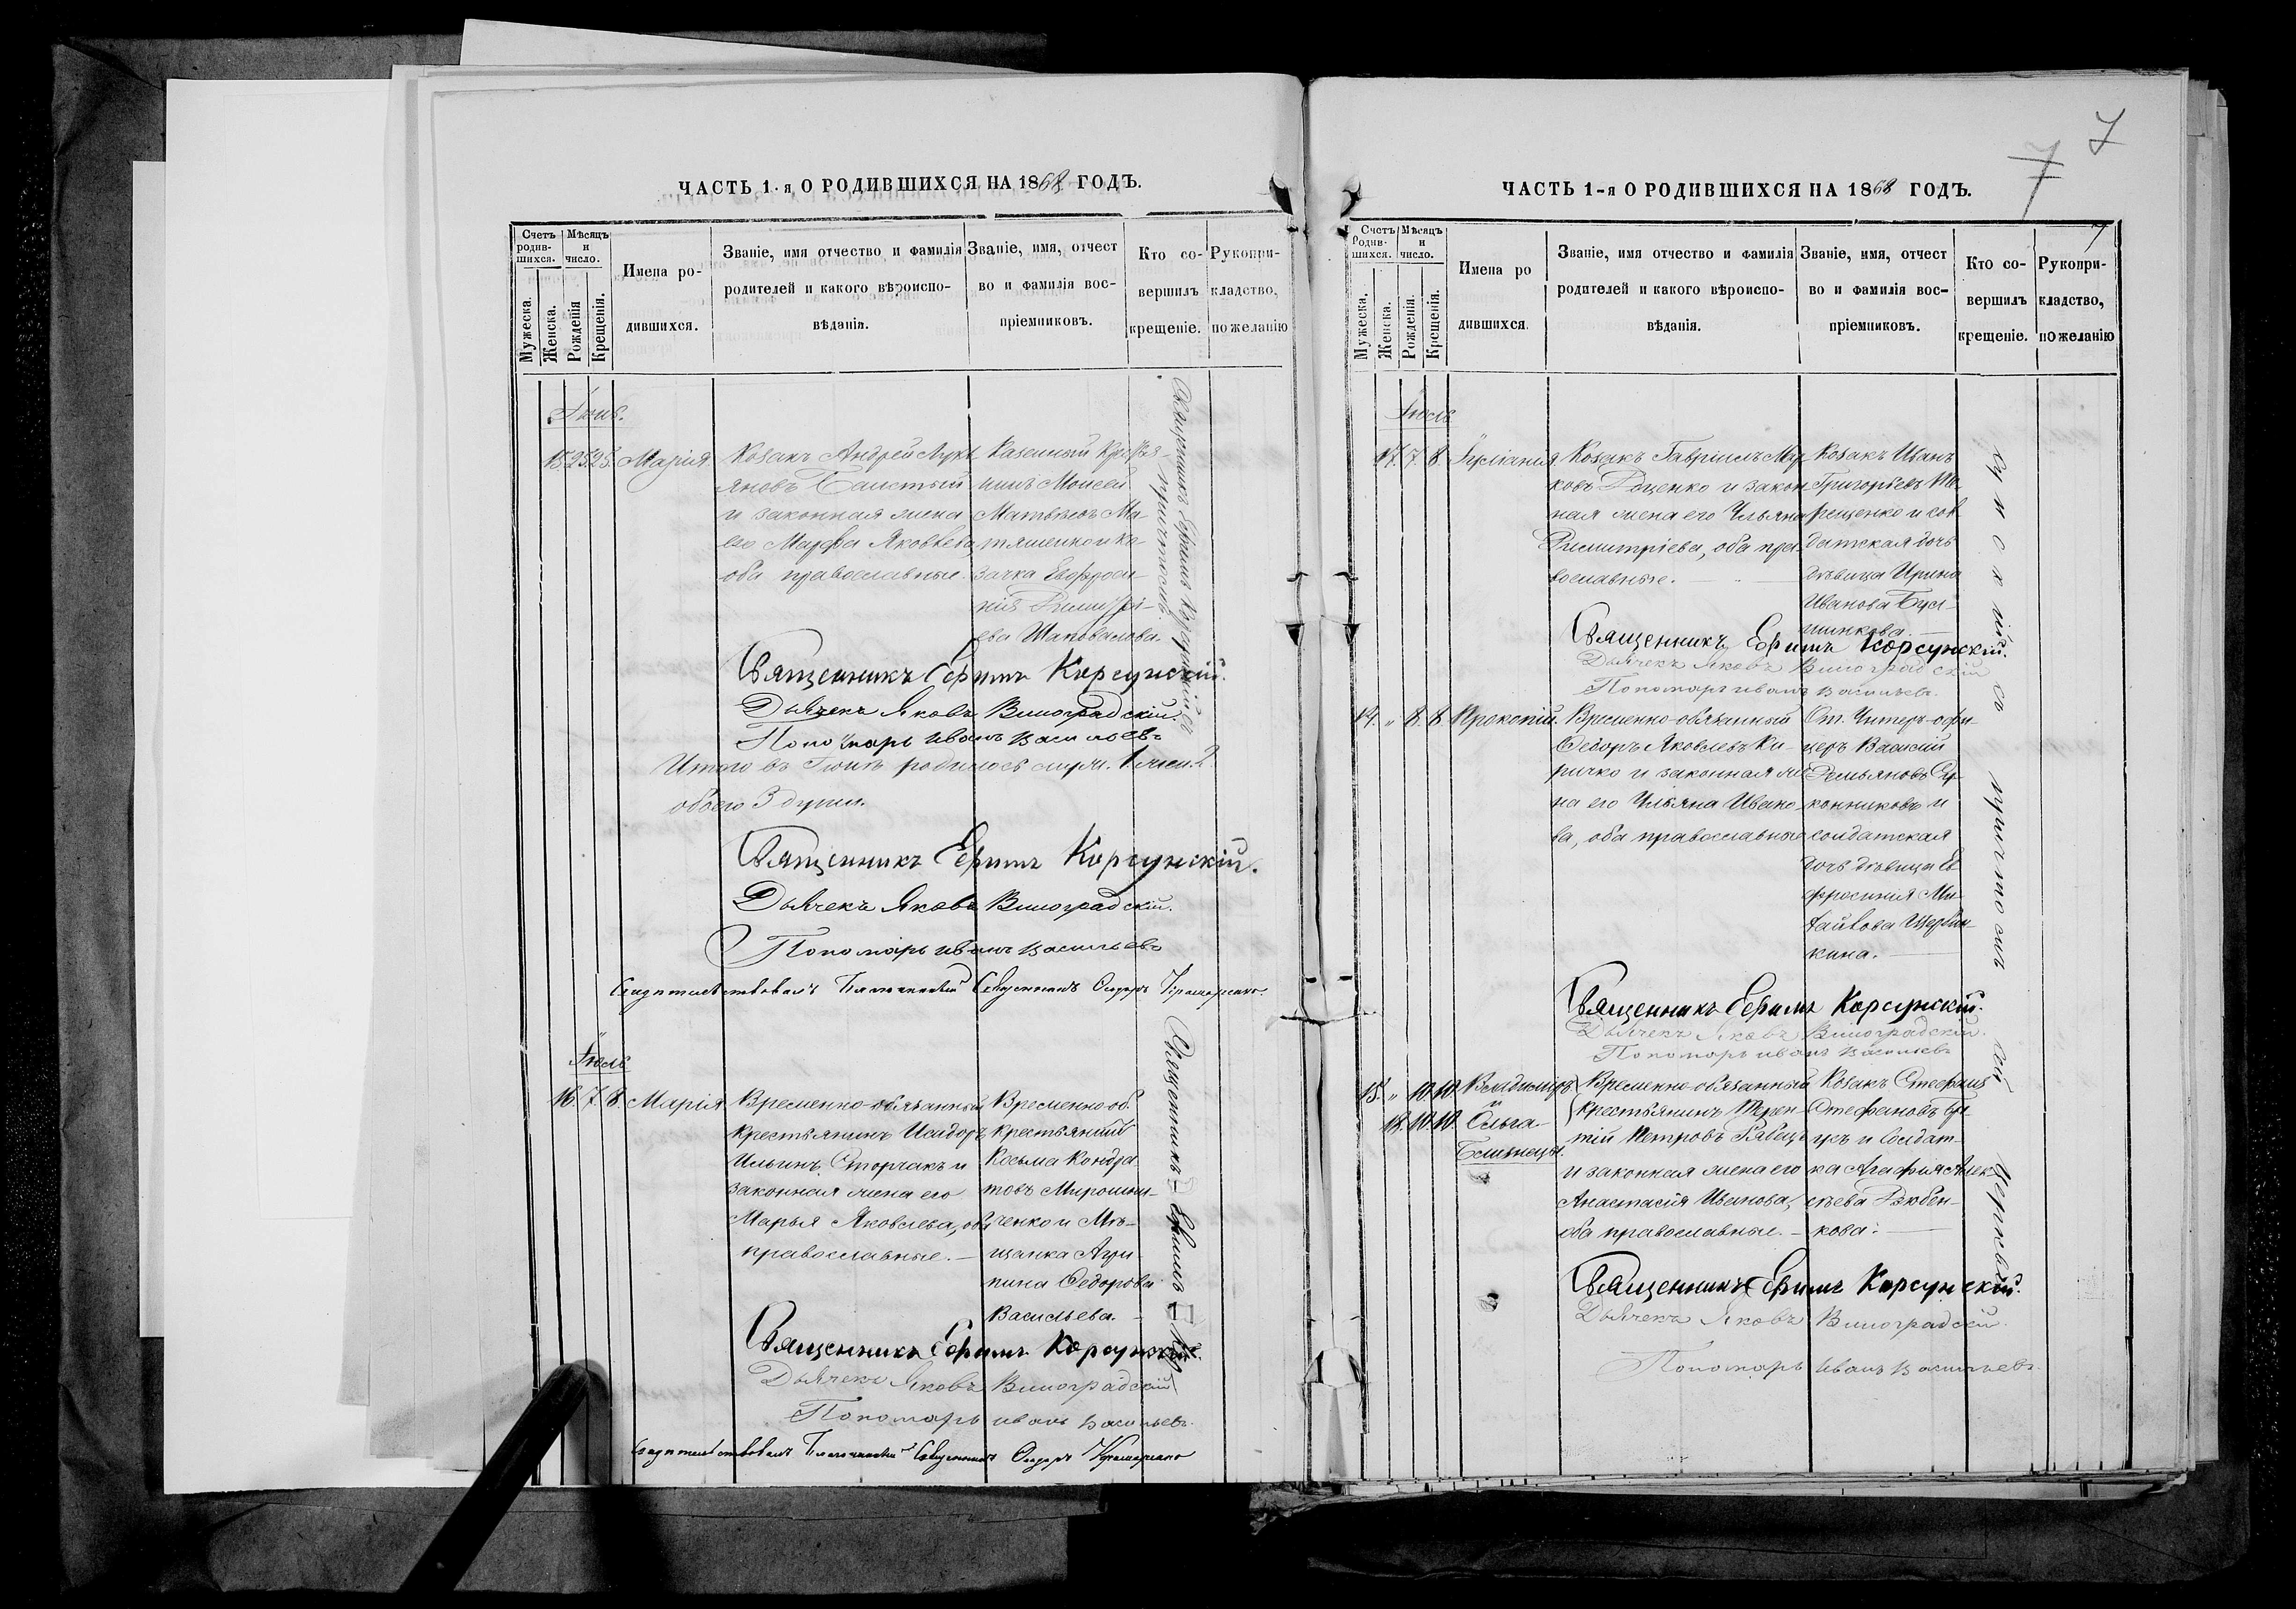 ЧАСТЬ 1-я О РОДИВШИХСЯ НА 1868 ГОДЪ.
Счетъ родив-шихся.
Мѣсяцъ и число.
Мужеска.
Женска.
Рожденія
Крещенія.
Имена ро-
дившихся.
Званіе, имя отчество и фамилія
родителей и какого вѣроиспо-
вѣданія.
Званіе, имя, отчест
во и фамилія вос-
пріемниковъ.
Кто со-
вершилъ
крещеніе.
Рукопри-
кладство,
по желанію
Іюнь.
15. 25. 25. Марія
Козакъ Андрей Лукі
яновъ
и законная жена
его Марфа Яковлева
оба православные.
Казенный Кре
нинъ Моисей
Матвѣевъ Ма-
тяшенко и ка-
зачка Евфроси-
нія Димитрі-
ева Шаповалова
Священникъ Ефимъ Корсунскій
съ причтомъ
Священникъ Ефимъ Корсунскій.
Дьячекъ Яковъ Виноградскій.
Пономарь Иванъ Васильевъ
Итого въ Іюнѣ родилось муж. 1 жен. 2
обоего 3 души.
Священникъ Ефимъ Корсунскій.
Дьячекъ Яковъ Виноградскій.
Пономарь Иванъ Васильевъ
Свидѣтельствовалъ Благочинный Священникъ
Іюль
16. 7. 8. Марія
Временно-обязанный
крестьянинъ Исидоръ
Ильинъ Сторчакъ и
законная жена его
Марья Яковлева, оба
православные.
Временно-об.
крестьянинъ
Косьма Кондра
товъ Мирошни-
ченко и Мѣ-
щанка Агри
пина Ѳедорова
Васильева.
Священникъ Ефимъ
Священникъ Ефимъ Корсунскій.
Дьячекъ Яковъ Виноградскій
Пономарь Иванъ Васильевъ.
Свидѣтельствовалъ Благочинный Священникъ
7
7
7
ЧАСТЬ 1-я О РОДИВШИХСЯ НА 1868 ГОДЪ.
Счетъ Родив-шихся.
Мѣсяцъ и число.
Мужеска.
Женска.
Рожденія.
Крещенія.
Имена ро
дившихся.
Званіе, имя отчество и фамилія
родителей и какого вѣроиспо-
вѣданія.
Званіе, имя, отчест
во и фамилія вос-
пріемниковъ.
Кто со-
вершилъ
крещеніе.
Рукопри-
кладство,
по желанію
Іюль
17. 7. 8. Іуліанія
Козакъ Гавріилъ
ковъ и закон
ная жена его Ульяна
Димитріева, оба пра
вославные.
Козакъ Иванъ
Григорьевъ
рещенко и сол
датская дочь
дѣвица Ирина
Иванова
Священникъ Ефимъ Корсунскій.
Дьячекъ Яковъ Виноградскій
Пономарь Иванъ Васильевъ.
14. „ 8. 8. Прокопій.
Временно-обязанный
Ѳедоръ Яковлевъ Ки-
ричко и законная же
на его Ульяна Ивано
ва, оба православные
От. Унтеръ-офи
церъ Василій
Демьяновъ
конниковъ и
солдатская
дочь дѣвица Ев
фросинія Ми
хайлова Щербин-
кина.
Священникъ Ефимъ Корсунскій.
Дьячекъ Яковъ Виноградскій.
Пономарь Иванъ Васильевъ
15. „ 10. 10. Владиміръ
18. 10. 10. Ольга
Близнецы.
Временно-обязанный
крестьянинъ Терен-
тій Петровъ
и законная жена его
Анастасія Иванова,
оба православные.
Козакъ Стефанъ
Стефановъ
и Солдат-
ка Агафія Алек
сѣева
кова.
Священникъ Ефимъ Корсунскій.
Дьячекъ Яковъ Виноградскій.
Пономарь Иванъ Васильевъ.